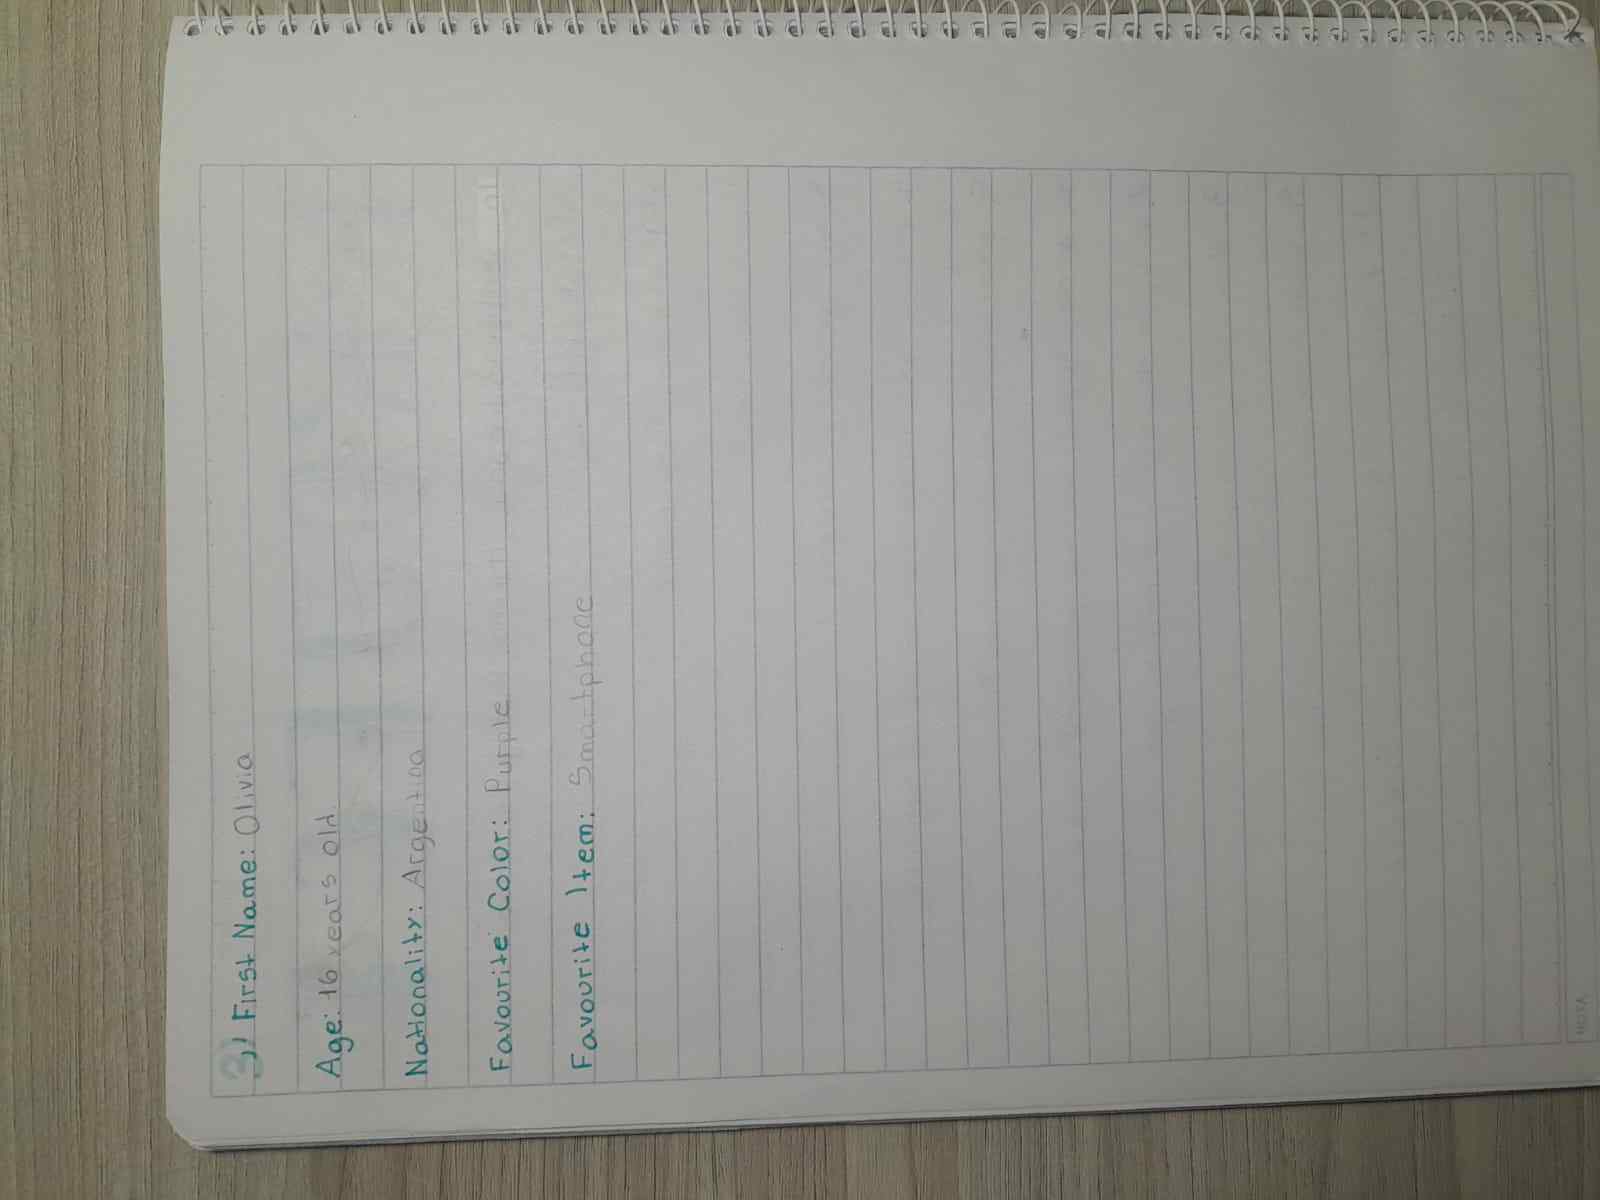 3,, First Name: Olivia
Age: 16 years old.
Nationality: Argentina
Favourite Color: Purple
Favourite Item: Smartphone